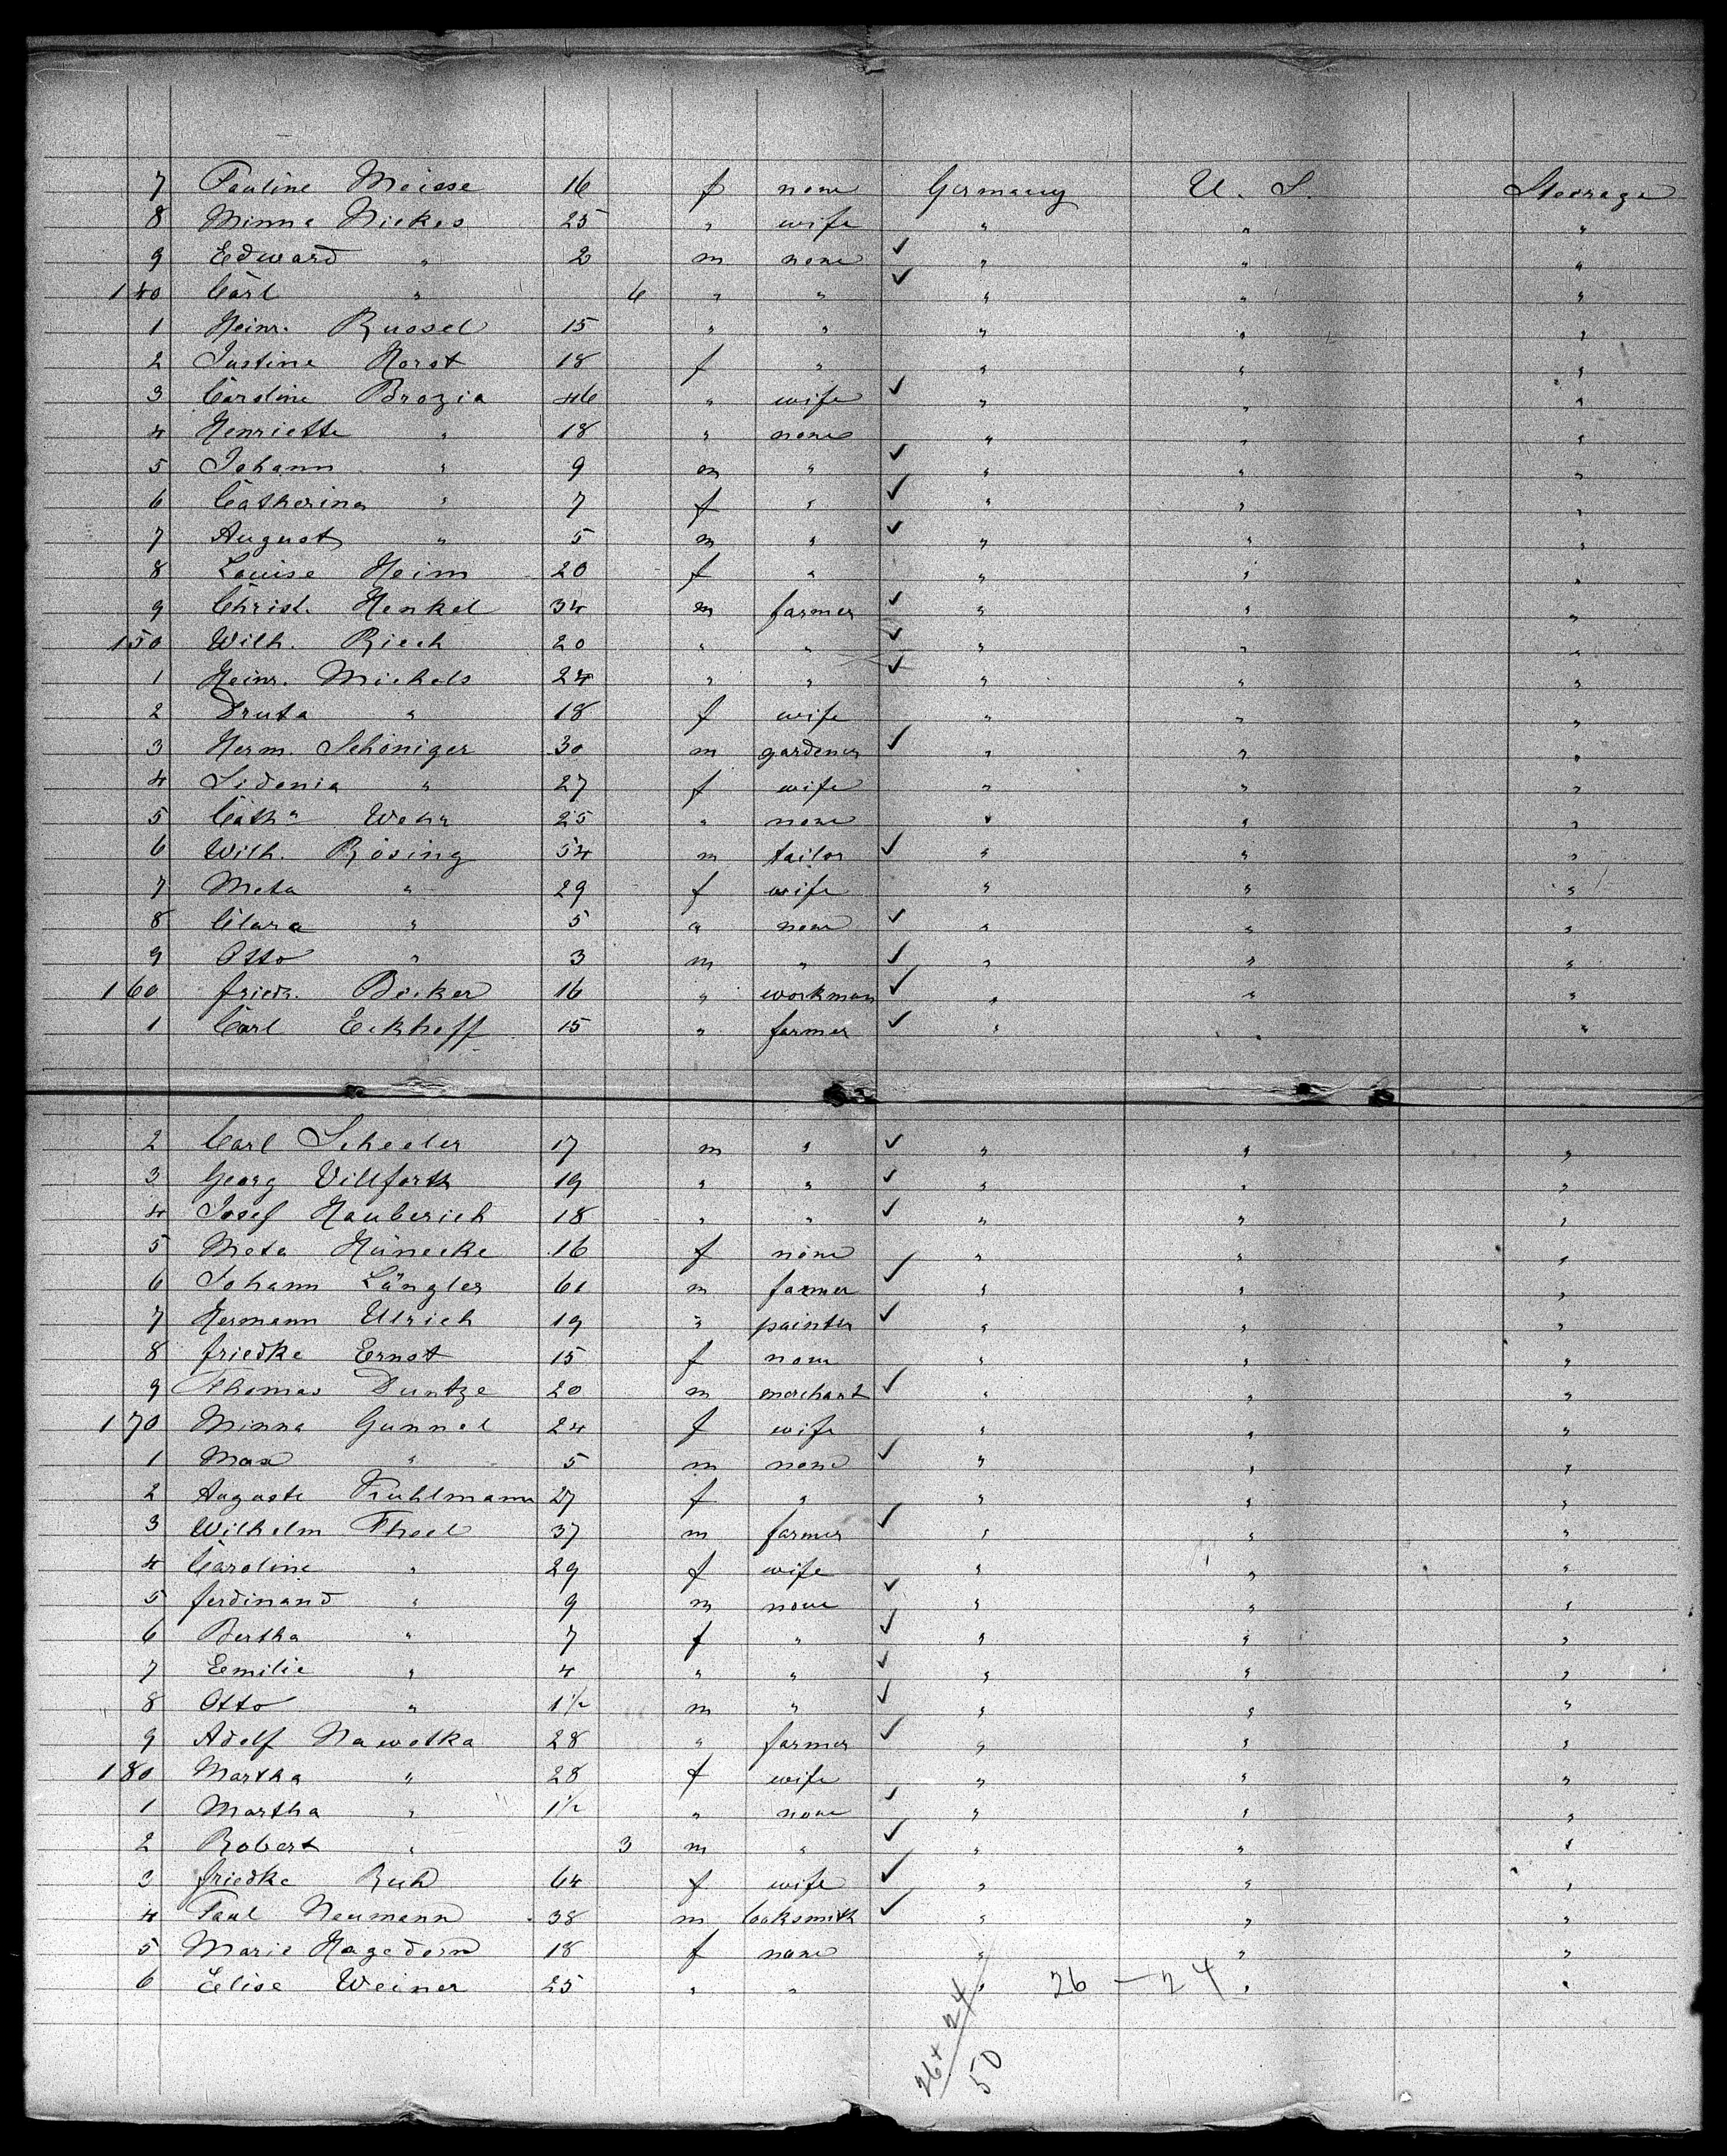 7 Pauline Meisse 16 f none Germany U. S. Steerage
8 Minna Niekes 25 " wife " " "
9 Edward " 2 m none ✓ " " "
140 Carl " 6 " " ✓ " " "
1 Heinr. Russel 15 " " " " "
2 Justine Horst 18 f " " " "
3 Caroline Brozia 46 " wife ✓ " " "
4 Henriette " 18 " none " " "
5 Johann " 9 m " ✓ " " "
6 Catherina " 7 f " ✓ " " "
7 August " 5 m " ✓ " " "
8 Louise Heim 20 f " " " "
9 Christ. Henkel 34 m farmer ✓ " " "
150 Wilh. Riech 20 " " ✓ " " "
1 Heinr. Michels 24 " " ✓ " " "
2 Druta " 18 f wife " " "
3 Herm. Schöniger 30 m gardener ✓ " " "
4 Sidonia " 27 f wife " " "
5 Catha Wehr 25 " none " " "
6 Wilh. Rösing 54 m tailor ✓ " " "
7 Meta " 29 f wife " " "
8 Clara " 5 " none ✓ " " "
9 Otto " 3 m " ✓ " " "
160 Friedr. Becker 16 " workman ✓ " " "
1 Carl Eckhoff 15 " farmer ✓ " " "
2 Carl Scheeler 17 m " ✓ " " "
3 Georg Villforth 19 " " ✓ " " "
4 Josef Hauberich 18 " " ✓ " " "
5 Meta Hünecke 16 f none " " "
6 Johann Längler 61 m farmer ✓ " " "
7 Hermann Ulrich 19 " painter ✓ " " "
8 Friedke Ernst 15 f none " " "
9 Thomas Duntze 20 m merchant ✓ " " "
170 Minna Gunnel 24 f wife " " "
1 Max " 5 m none ✓ " " "
2 Auguste Kuhlmann 27 f " " " "
3 Wilhelm Theel 37 m farmer ✓ " " "
4 Caroline " 29 f wife " " "
5 Ferdinand " 9 m none ✓ " " "
6 Bertha " 7 f " ✓ " " "
7 Eemilie " 4 " " ✓ " " "
8 Otto " 1½ m " ✓ " " "
9 Adolf Nawotka 28 " farmer ✓ " " "
180 Martha " 28 f wife " " "
1 Martha " 1½ " none ✓ " " "
2 Robert " 3 m " ✓ " " "
3 Friedke Ruh 64 f wife ✓ " " "
4 Paul Neumann 38 m locksmith ✓ " " "
5 Marie Hagedorn 18 f none " " "
6 Elise Weiner 25 " " " 26 — 24 " "
26 + 24
50